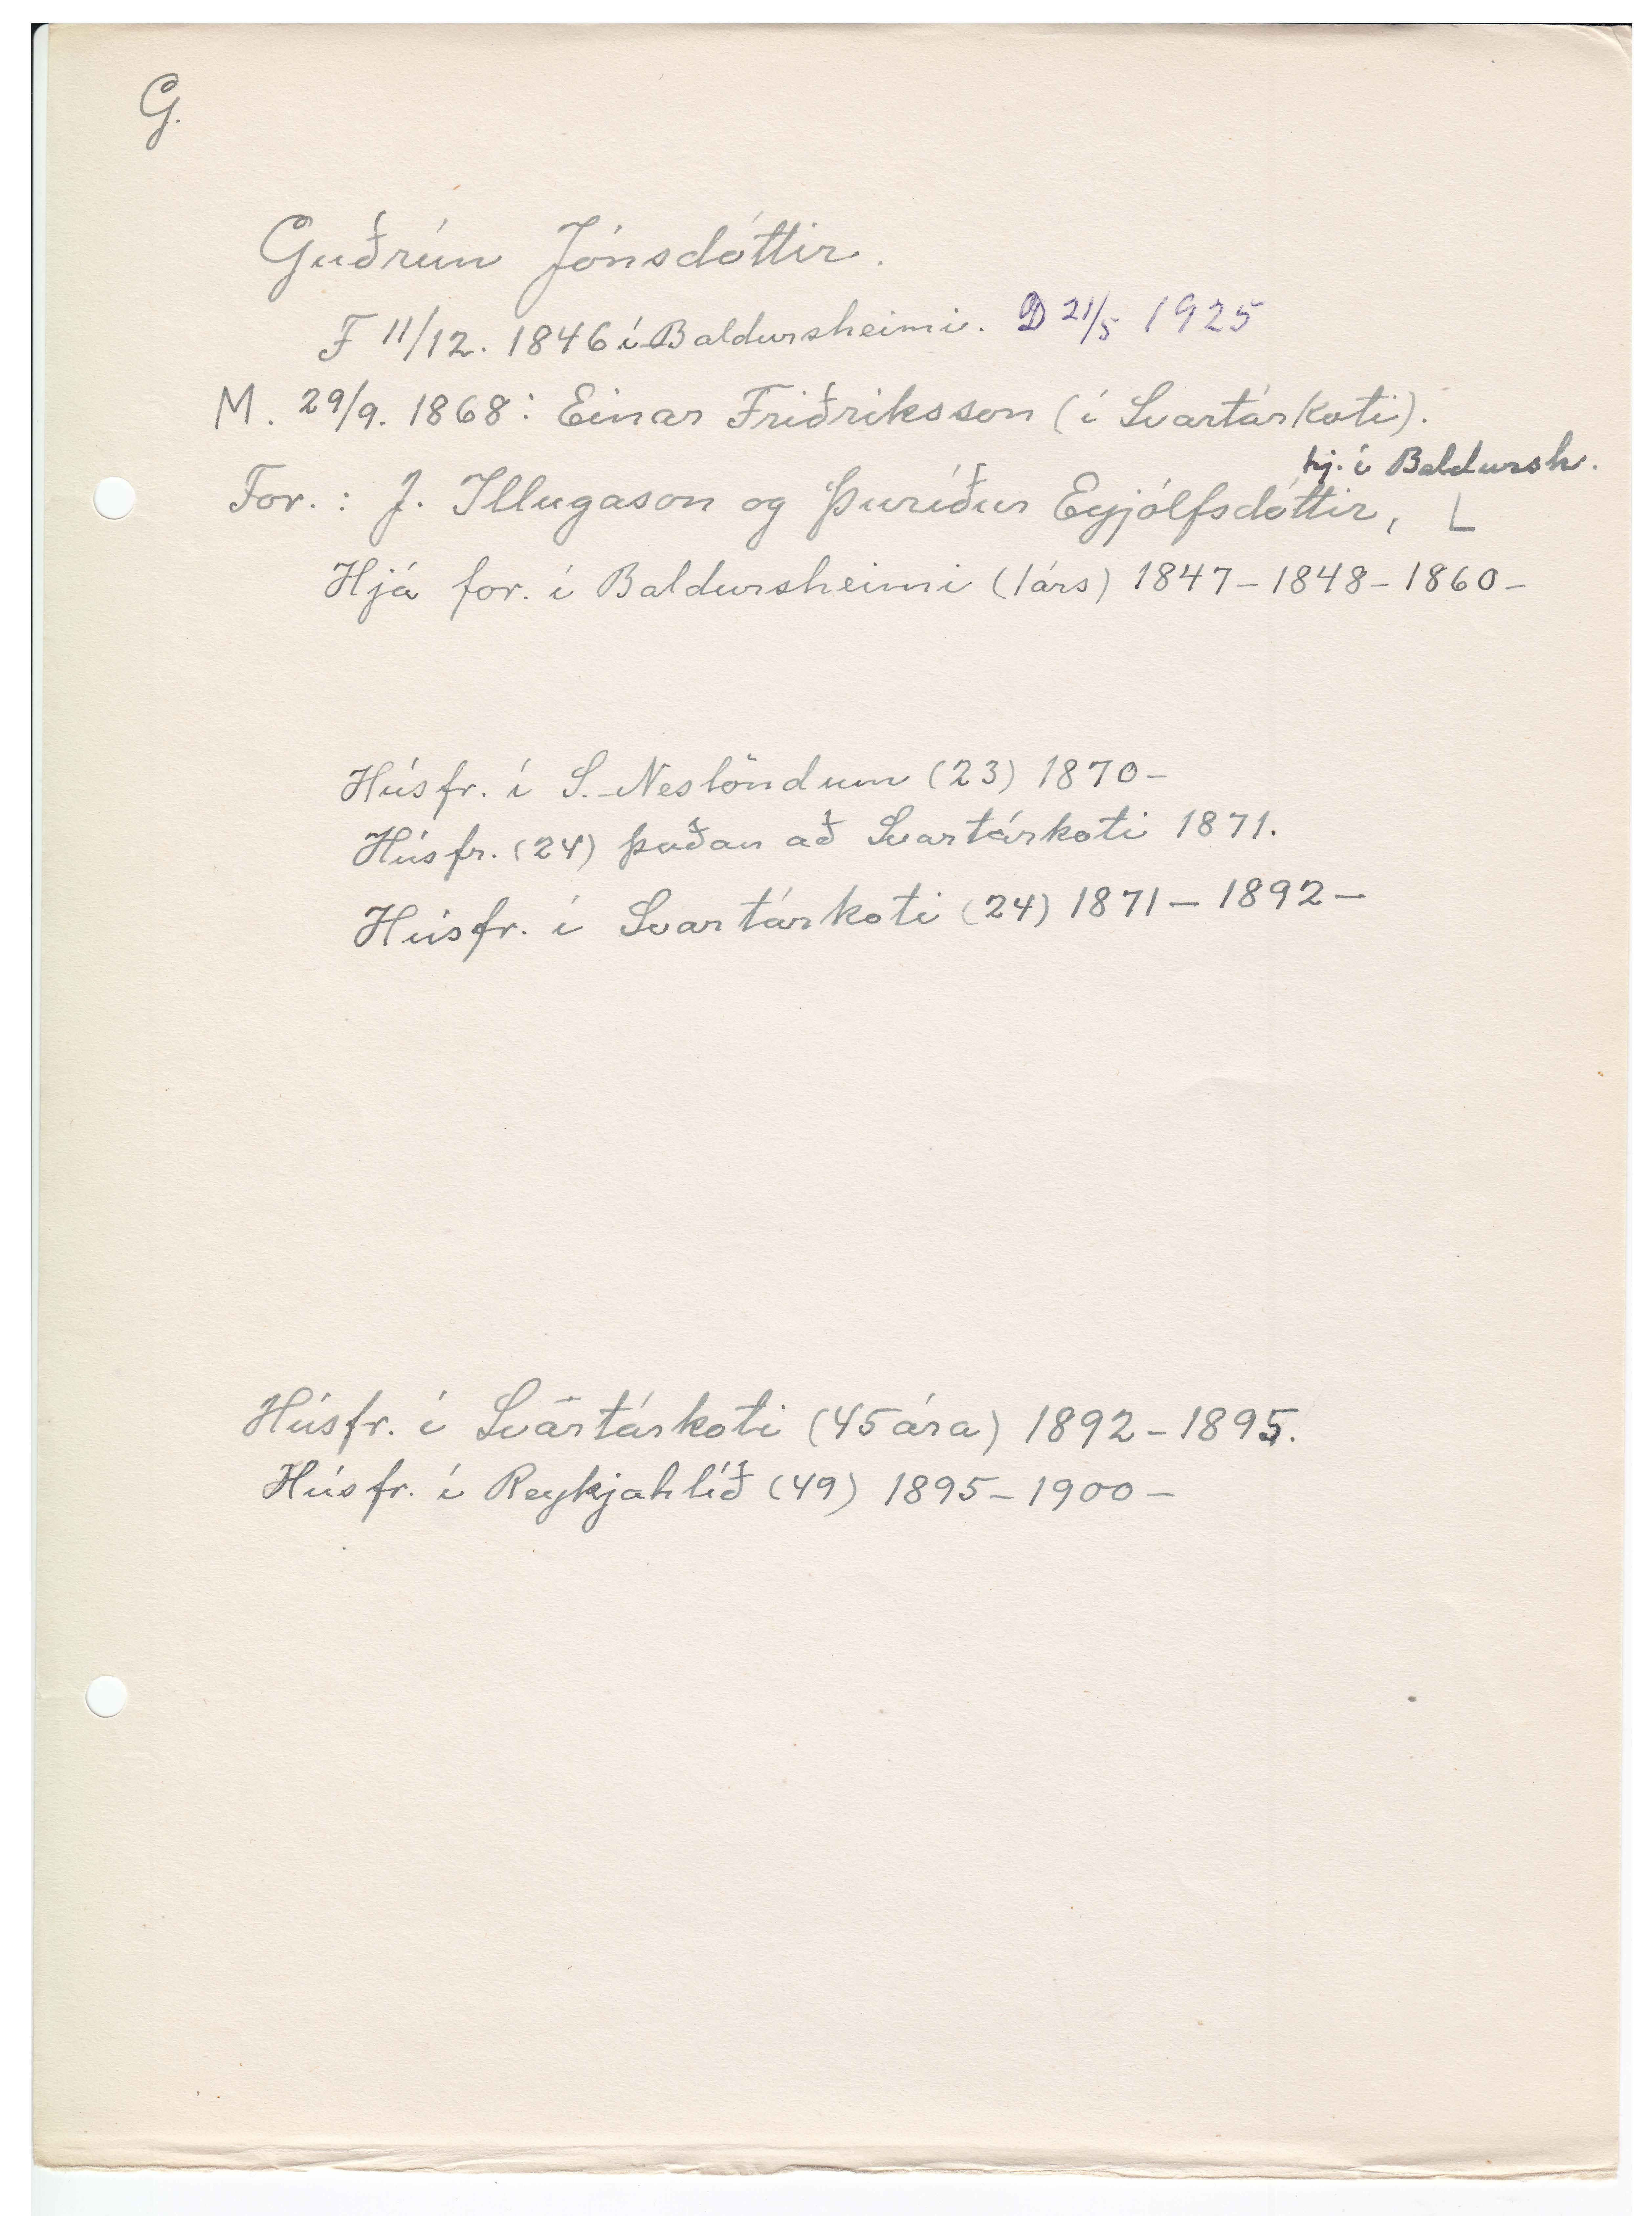 G.
Guðrún Jónsdóttir.
F 11/12. 1846 í Baldursheimi. D 21/5 1925
M. 29/9. 1868: Einar Friðriksson (í Svartárkoti).
hj. í Baldursh.
For.: J. Illugason og Þuríður Eyjólfsdóttir, L
Hjá for. í Baldursheimi (1árs) 1847-1848-1860-
Húsfr. í S.-Neslöndum (23) 1870-
Húsfr. (24) þaðan að Svartárkoti 1871.
Húsfr. í Svartárkoti (24) 1871-1892-
Húsfr. í Svartárkoti (45 ára) 1892-1895.
Húsfr. í Reykjahlíð (49) 1895-1900-